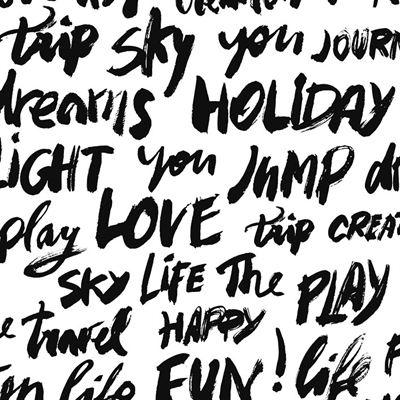 trip sky you JOURN
dreams HOLIDAY
LIGHT you JUMP
play LOVE trip CREAT
SKY LIFE The PLAY
travel HAPPY
life FUN! life